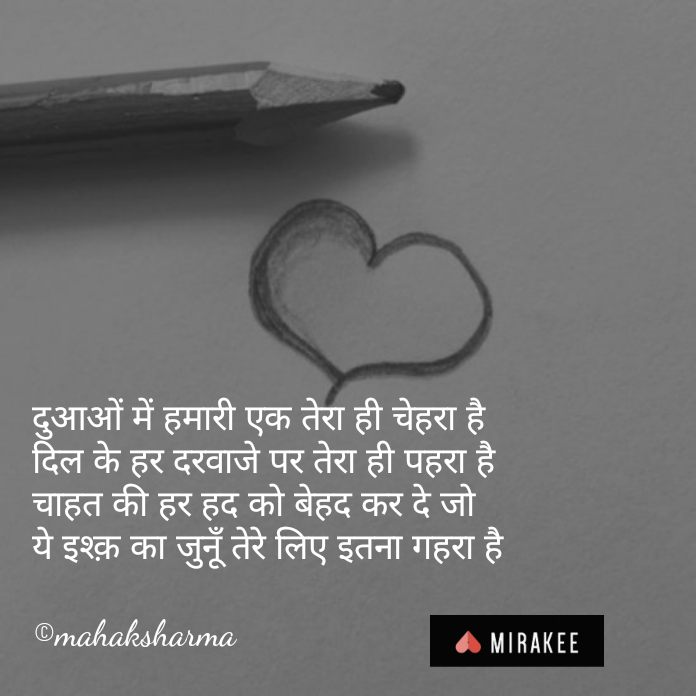 दुआओं में हमारी एक तेरा ही चेहरा है
दिल के हर दरवाजे पर तेरा ही पहरा है
चाहत की हर हद को बेहद कर दे जो
ये इश्क़ का जुनूँ तेरे लिए इतना गहरा है
©mahaksharma
MIRAKEE